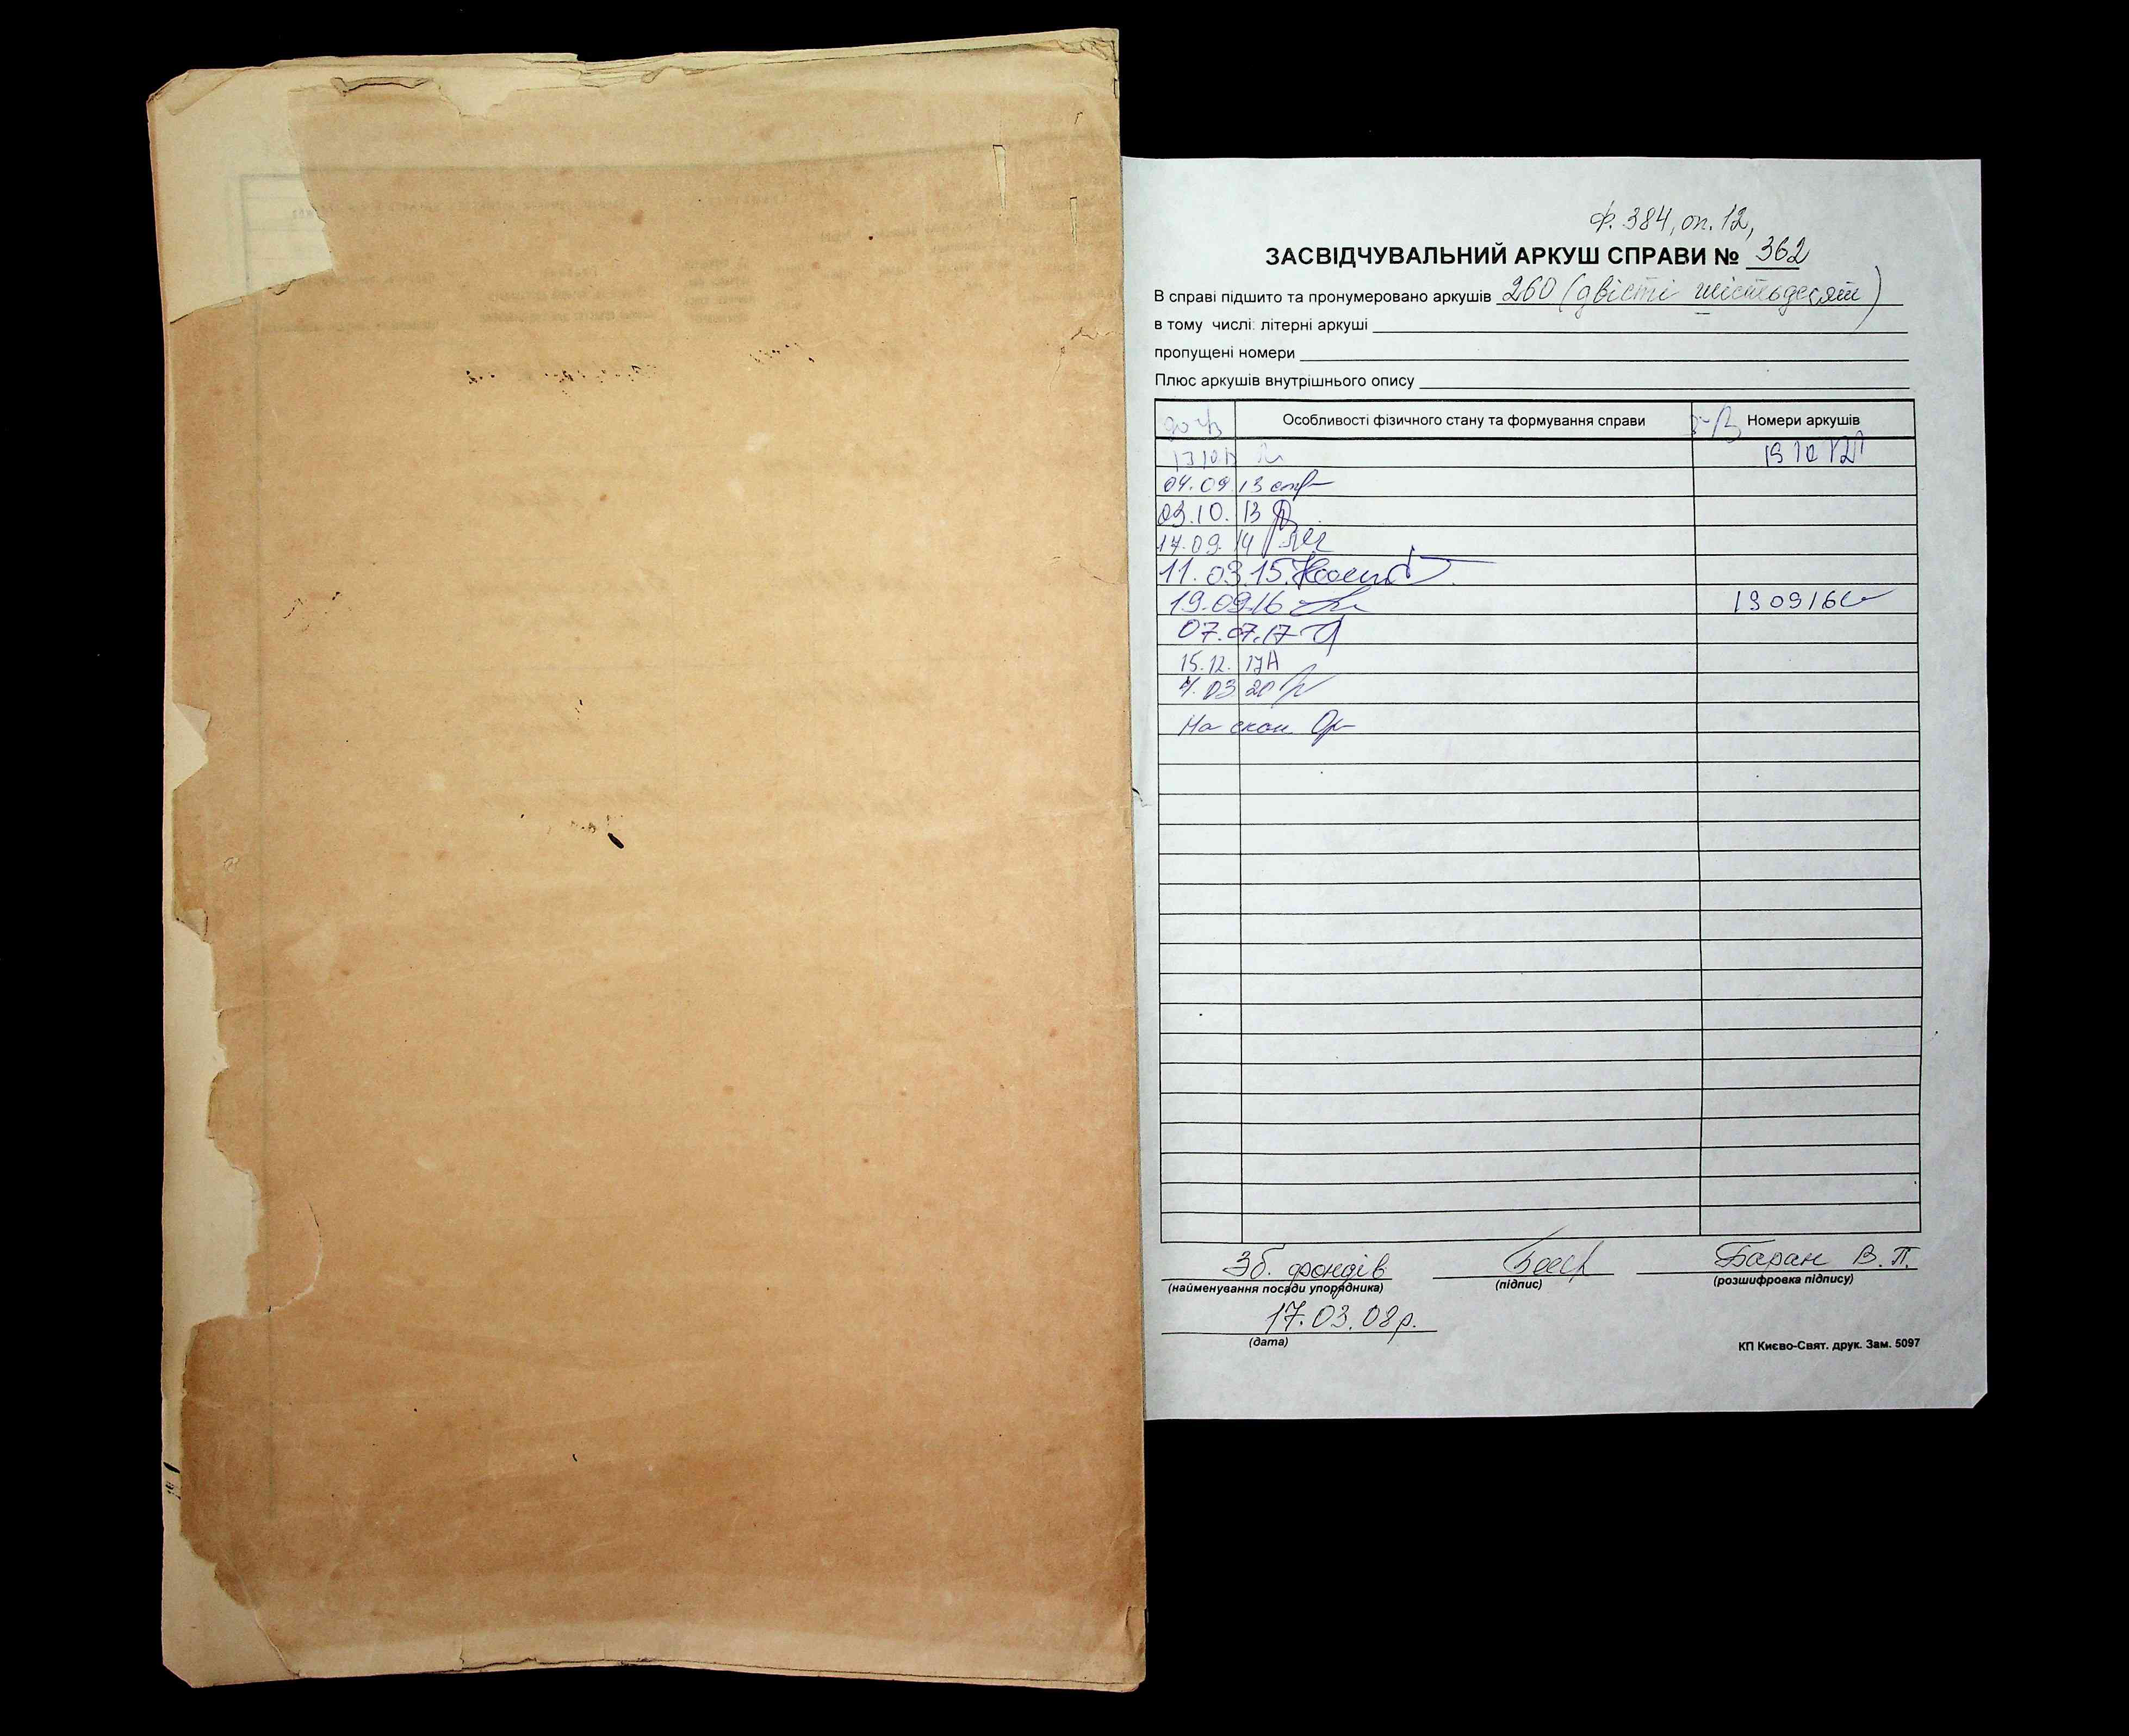 Ф. 384, оп. 12,
ЗАСВІДЧУВАЛЬНИЙ АРКУШ СПРАВИ № 362
В справі підшито та пронумеровано аркушів 260 (двісті шістьдесят)
в тому числі: літерні аркуші
пропущені номери
Плюс аркушів внутрішнього опису
Особливості фізичного стану та формування справи
Номери аркушів
04.09.13
03.10.13
17.09.14
11.03.15
19.09.16
190916
07.07.17
15.12.17
03 20
На скан.
Зб. фондів
Баран В. П.
(найменування посади упорядника)
(підпис)
(розшифровка підпису)
17.03.08р.
(дата)
КП Києво-Свят. друк. Зам. 5097